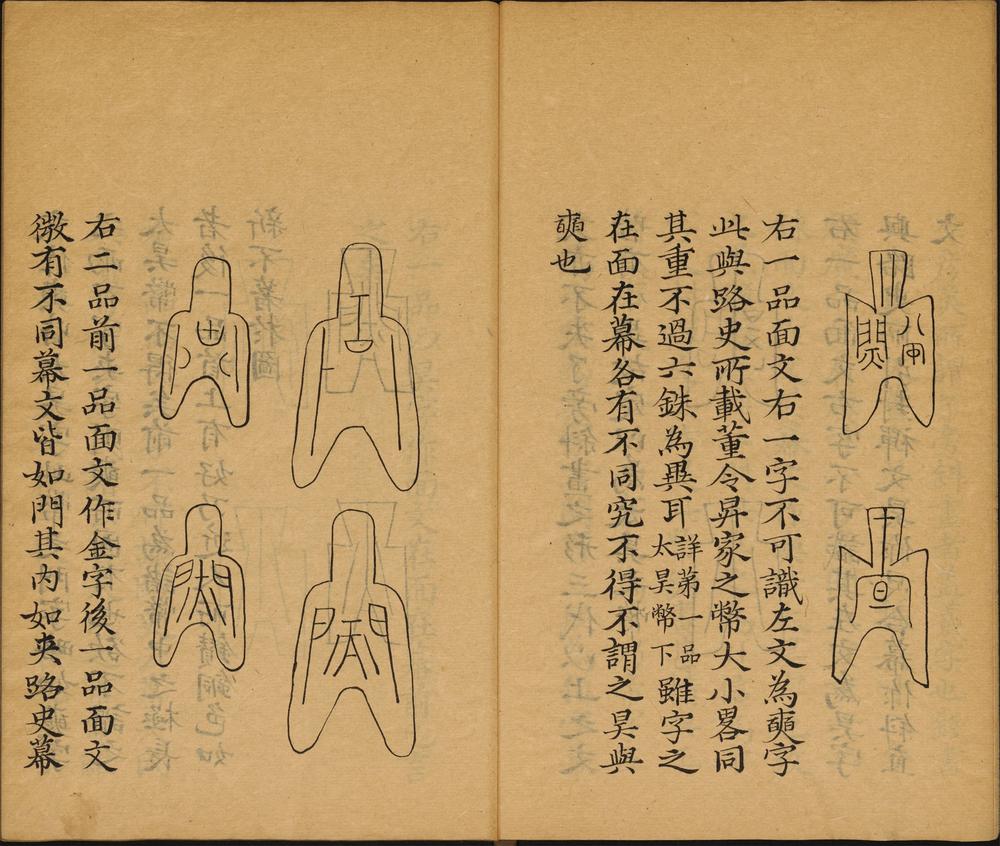 右一品面文右一字不可識左文為奭字
此與路史所載董令昇家之幣大小畧同
其重不過六銖為異耳詳第一品太昊幣下雖字之
在面在幕各有不同究不得不謂之昊與
奭也
右二品前一品面文作金字後一品面文
微有不同幕文皆如門其内如夾路史幕